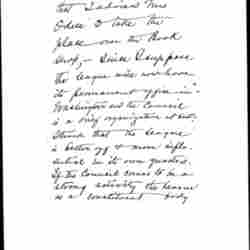 that Ladies Mrs
Odell to take the
place over the Book
Shop, – Since I suppose
the League will now have
its permanent office in
Washington and the Council
is a only organization it
Stand that the League
is better off & more influ-
ential in its own quarters.
If the Council comes to be a
strong activity the League
as a constituent body